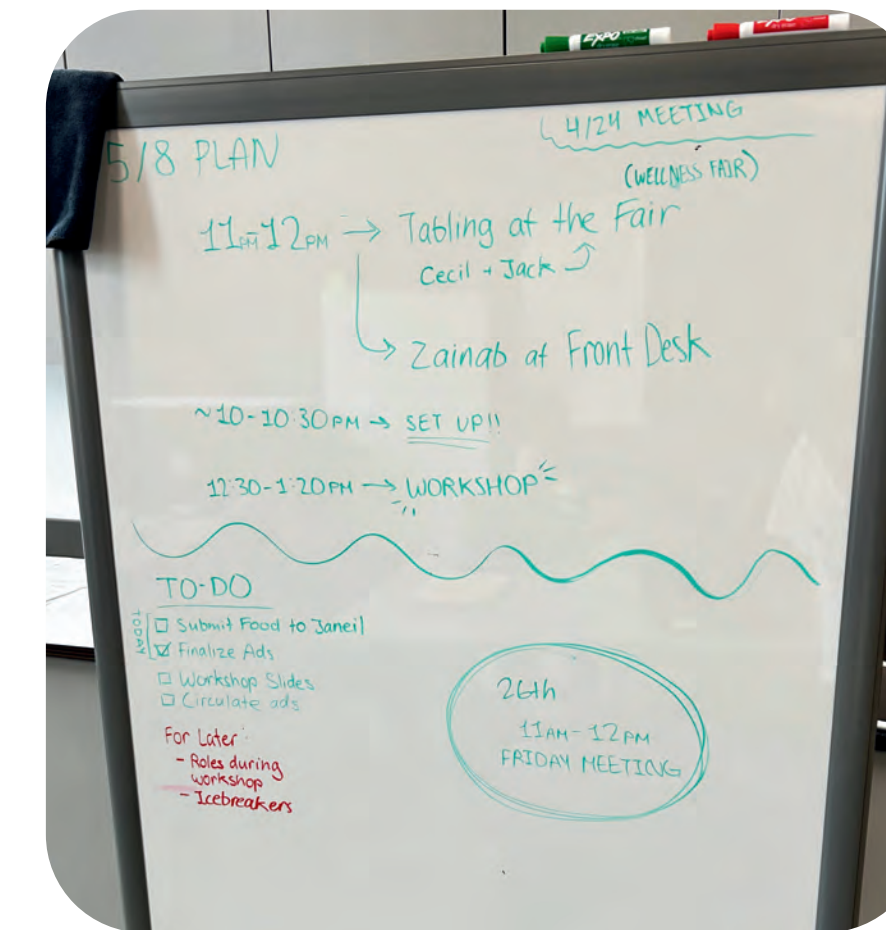 EXPO
EXPO
4/24 MEETING
5/8 PLAN
(WELLNESS FAIR)
11PM-12PM → Tabling at the Fair
Cecil + Jack
→ Zainab at Front Desk
~10-10:30PM → SET UP!!
12:30-1:20PM → WORKSHOP
TO-DO
TODAY
☐ Submit Food to Janeil
☑ Finalize Ads
☐ Workshop Slides
☐ Circulate ads
For Later:
- Roles during
workshop
- Icebreakers
26th
11AM-12PM
FRIDAY MEETING